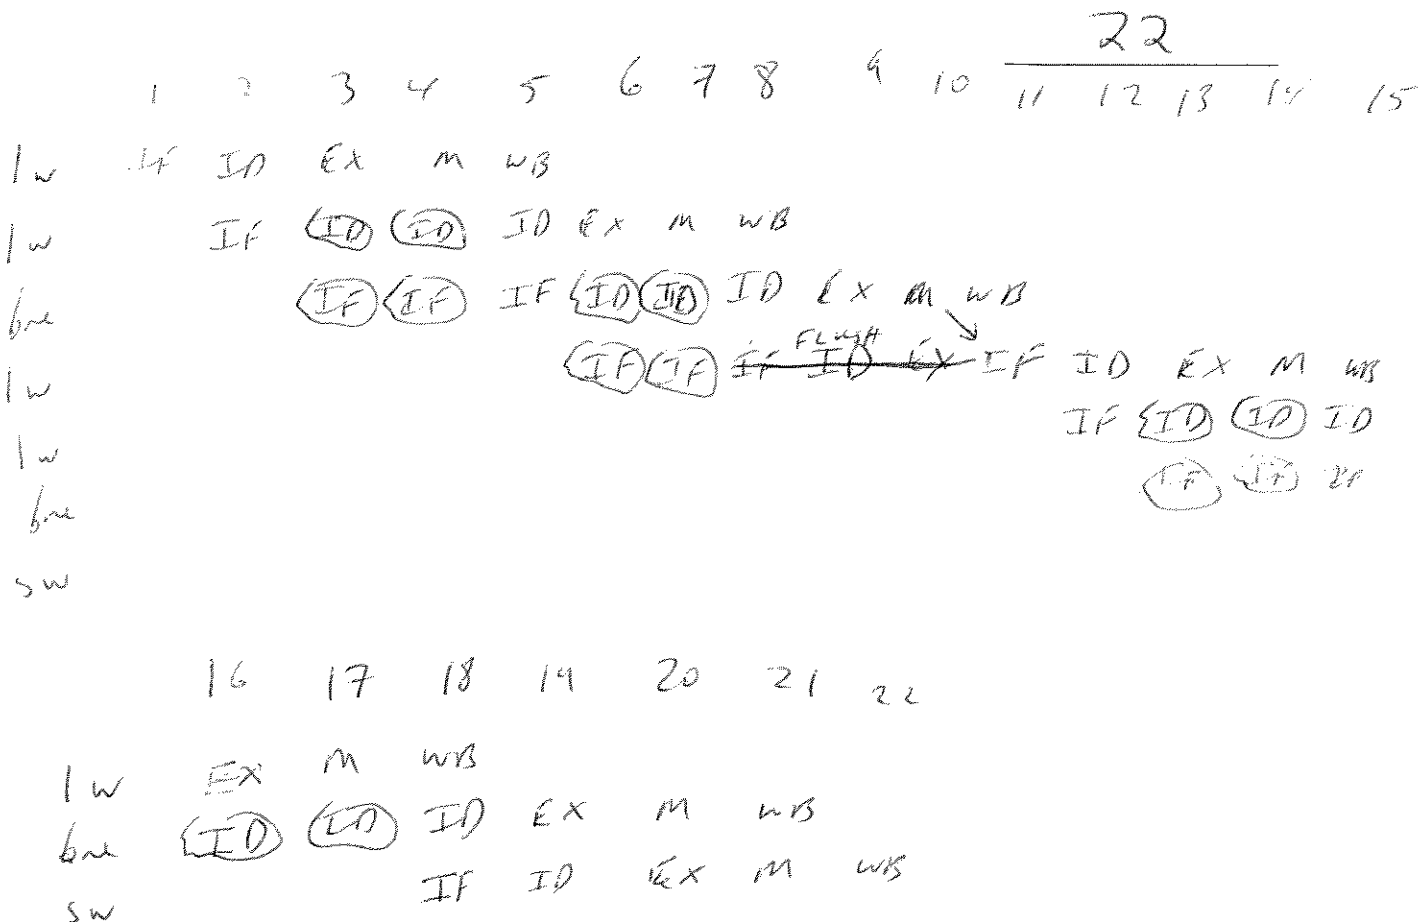 22
1 2 3 4 5 6 7 8 9 10 11 12 13 14 15
lw IF ID EX M WB
lw IF ID ID ID EX M WB
bne IF IF IF ID ID ID EX M WB
FLUSH
lw IF IF IF ID EX IF ID EX M WB
lw IF ID ID ID
bne IF IF IF
sw
16 17 18 19 20 21 22
lw EX M WB
bne ID ID ID EX M WB
sw IF ID EX M WB